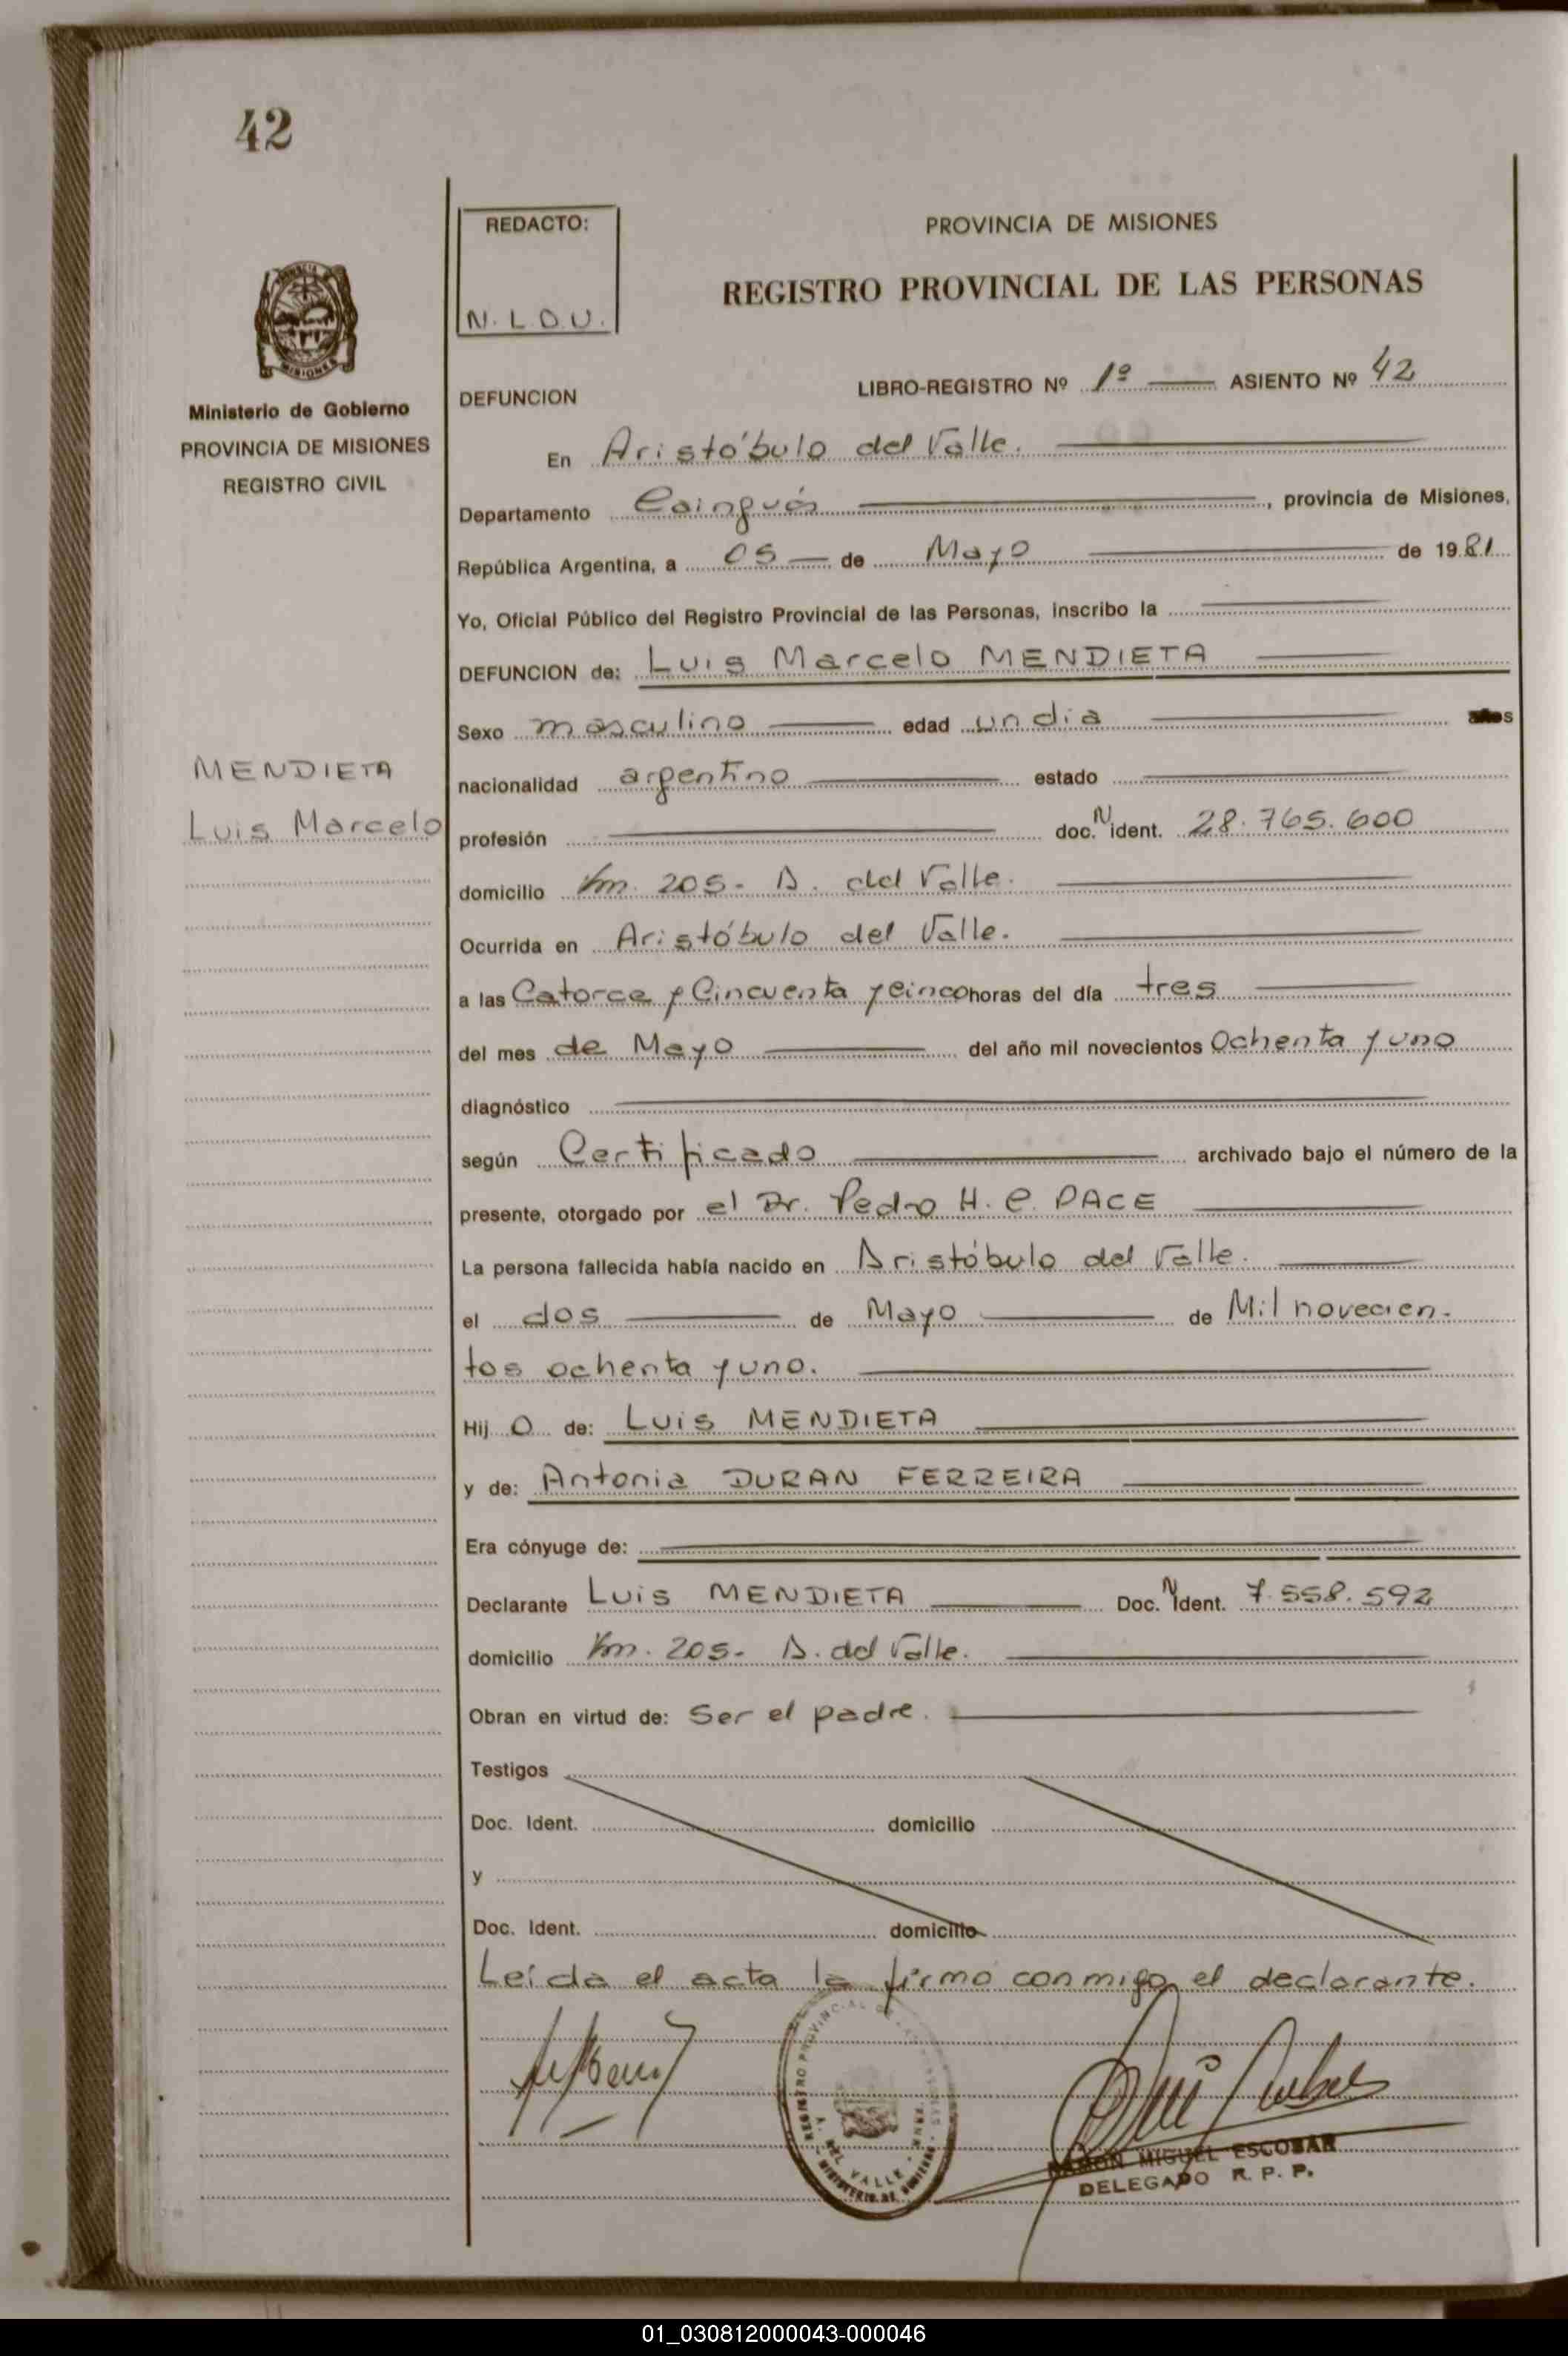 42
MISIONES
Ministerio de Gobierno
PROVINCIA DE MISIONES
REGISTRO CIVIL
MENDIETA
Luis Marcelo
REDACTO:
N. L. D. U.
PROVINCIA DE MISIONES
REGISTRO PROVINCIAL DE LAS PERSONAS
DEFUNCION LIBRO-REGISTRO Nº 1º ASIENTO Nº 42
En Aristóbulo del Valle.
Departamento Cainguás, provincia de Misiones,
República Argentina, a 05 de Mayo de 1981
Yo, Oficial Público del Registro Provincial de las Personas, inscribo la
DEFUNCION de: Luis Marcelo MENDIETA
Sexo masculino edad un dia
nacionalidad argentino estado
profesión doc. N ident. 28.765.600
domicilio Km. 205- A. del Valle.
Ocurrida en Aristóbulo del Valle.
a las Catorce y Cincuenta y cinco horas del día tres
del mes de Mayo del año mil novecientos Ochenta y uno
diagnóstico
según Certificado archivado bajo el número de la
presente, otorgado por el Dr. Pedro H. C. PACE
La persona fallecida había nacido en Aristóbulo del Valle.
el dos de Mayo de Mil novecien-
tos ochenta y uno.
Hij o de: Luis MENDIETA
y de: Antonia DURAN FERREIRA
Era cónyuge de:
Declarante Luis MENDIETA Doc. N Ident. 7.558.592
domicilio Km. 205- A. del Valle.
Obran en virtud de: Ser el padre.
Testigos
Doc. Ident. domicilio
y
Doc. Ident. domicilio
Leída el acta la firmo conmigo el declarante.
REGISTRO PROVINCIAL DE LAS
A. DEL VALLE
RAMON MIGUEL ESCOBAR
DELEGADO R. P. P.
01_030812000043-000046